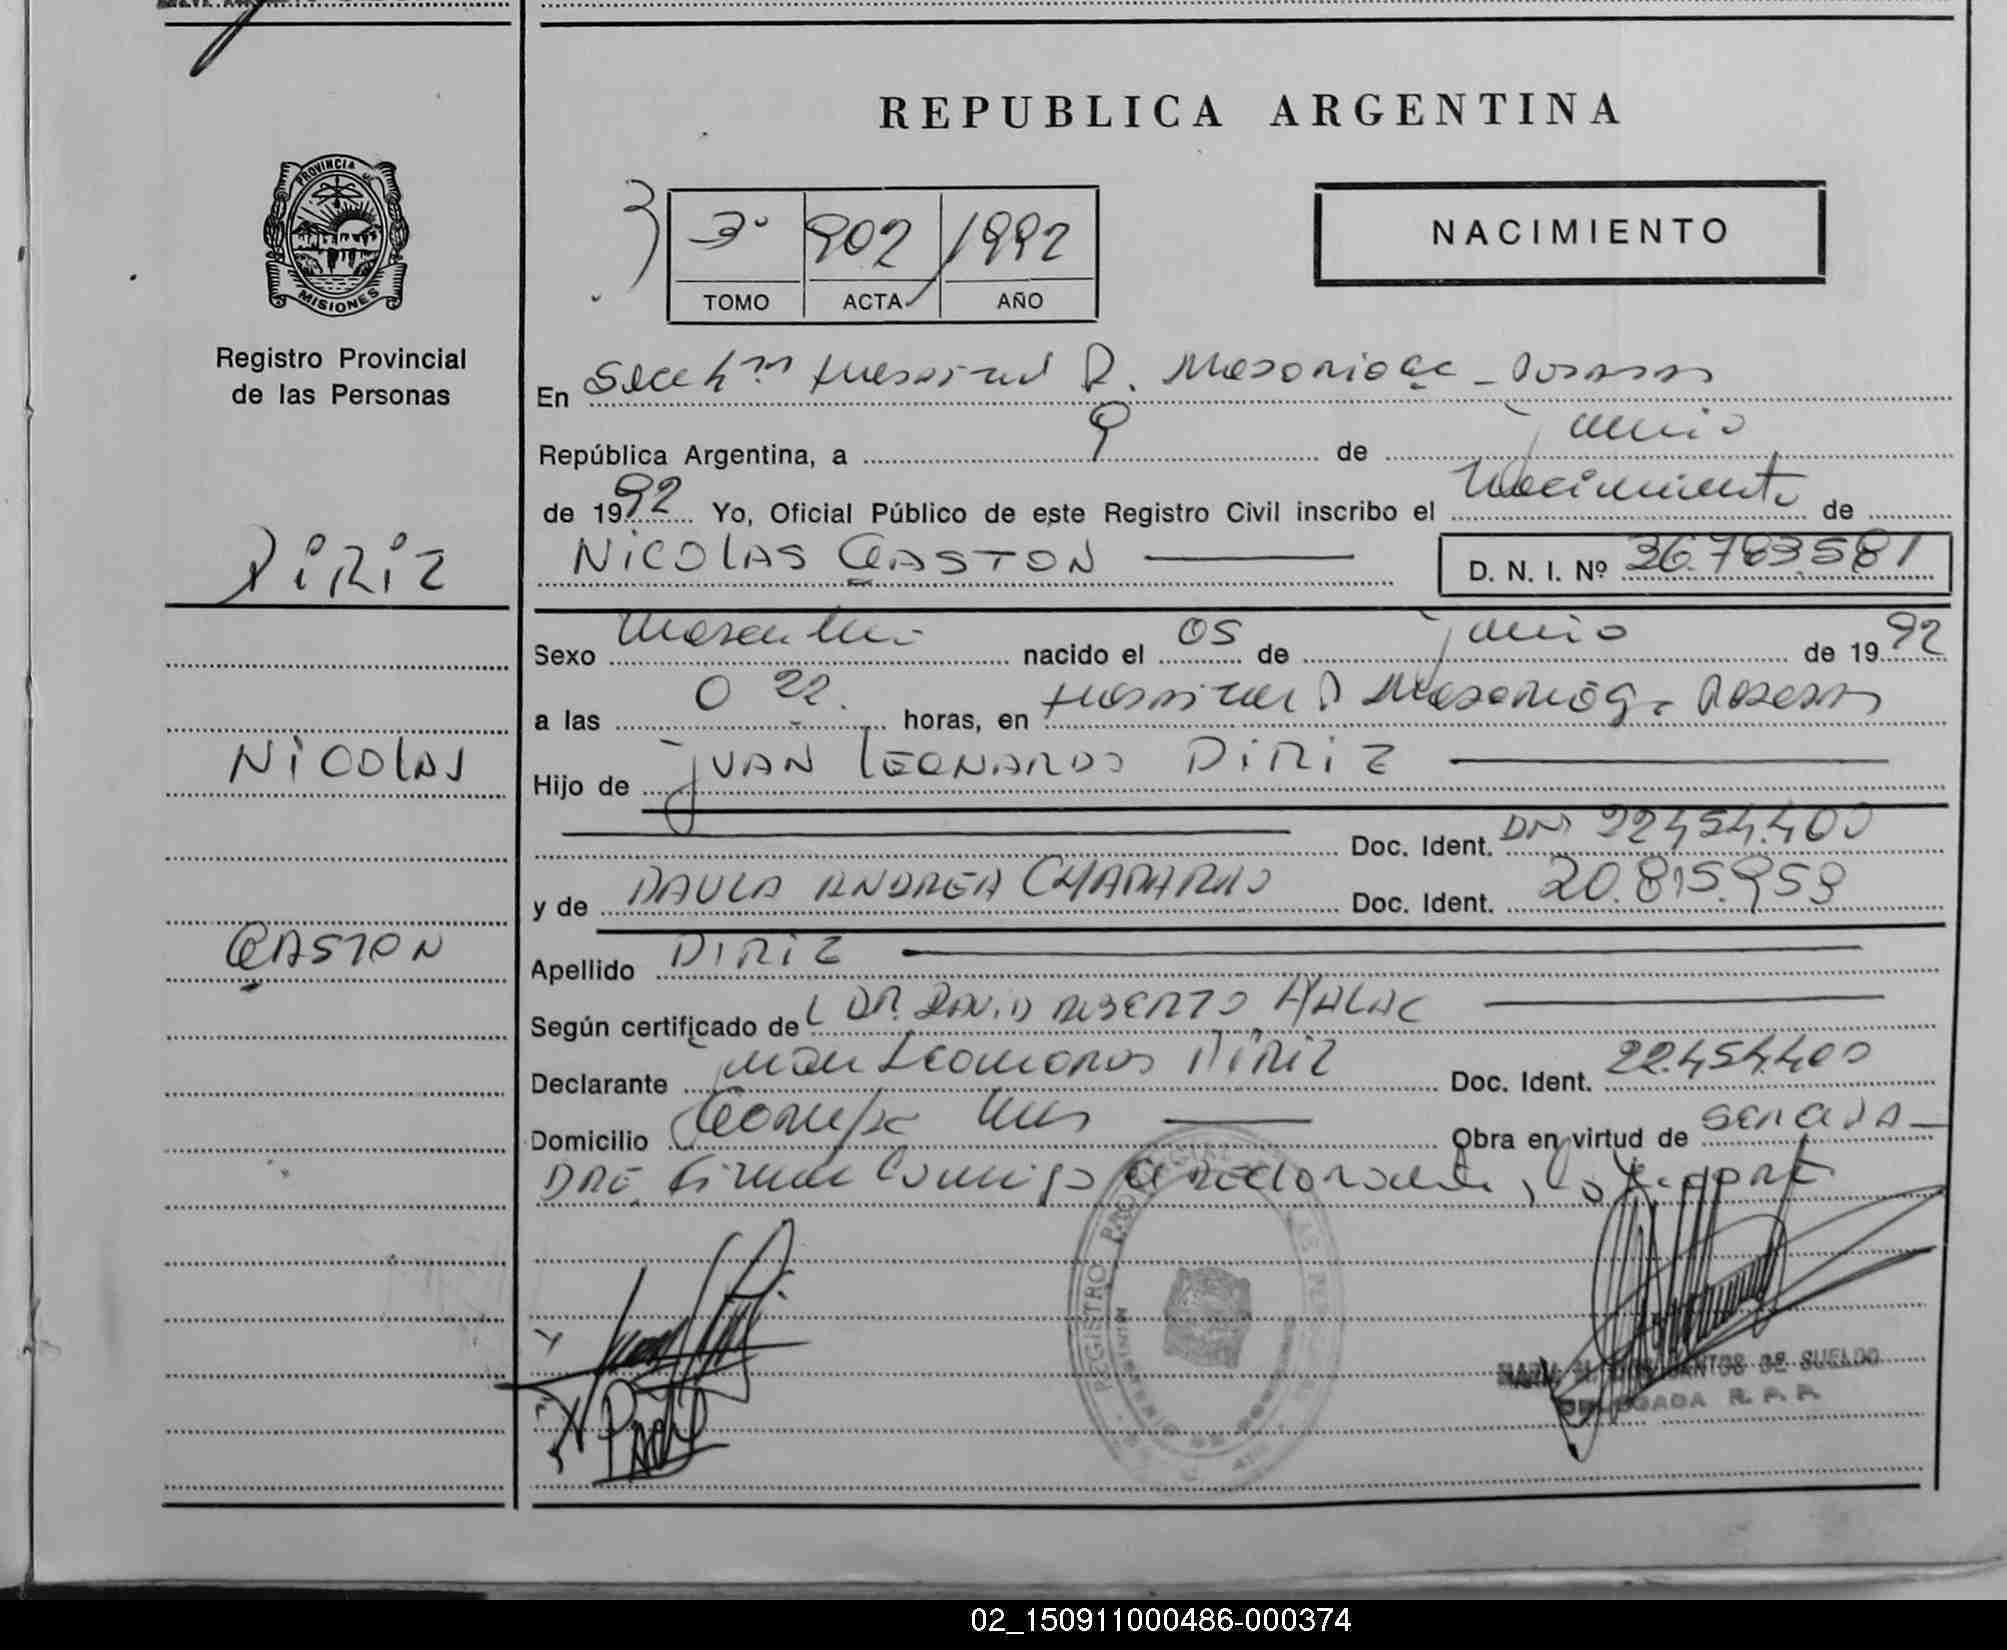 REPUBLICA ARGENTINA
PROVINCIA DE
MISIONES
Registro Provincial
de las Personas
NACIMIENTO
3º 902 1992
TOMO ACTA AÑO
En Secc Hospital R. Madariaga - Posadas
República Argentina, a 9 de junio
de 1992 Yo, Oficial Público de este Registro Civil inscribo el Nacimiento de
DIRIZ
NICOLAS GASTON D. N. I. Nº 36.783.581
Sexo Masculino nacido el 05 de junio de 1992
a las 0 22. horas, en Hospital R Madariaga - Posadas
NICOLAS
Hijo de JUAN LEONARDO DIRIZ
Doc. Ident. DNI 22.454.400
y de PAULA ANDREA CHAPARRO Doc. Ident. 20.815.959
GASTON
Apellido DIRIZ
Según certificado de DR. DAVID ALBERTO HALAC
Declarante Juan Leonardo DIRIZ Doc. Ident. 22.454.400
Domicilio Obra en virtud de ser el
padre. Firma conmigo el declarante,
REGISTRO
MARIA SANTOS DE SUELDO
DELEGADA R. P. P.
02_150911000486-000374